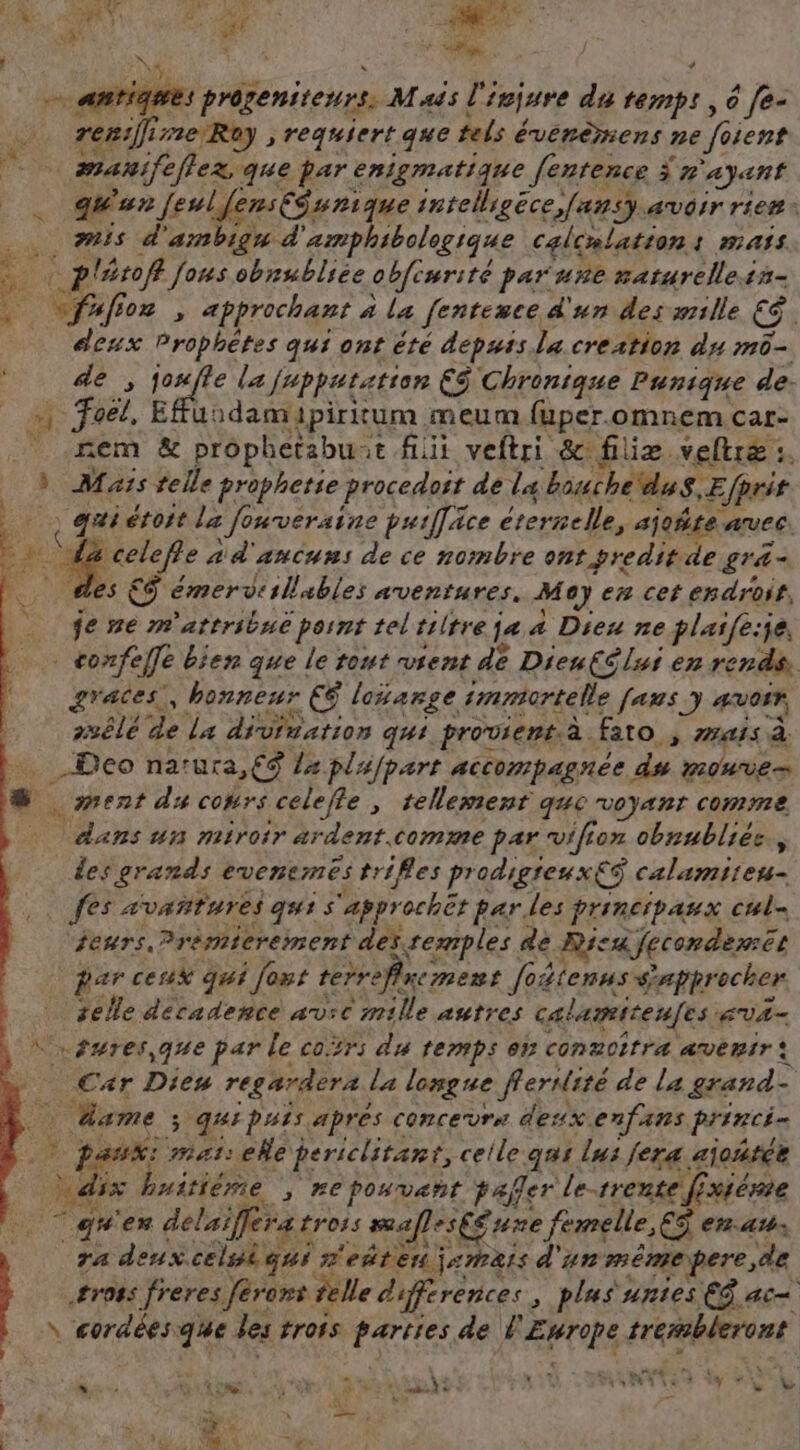 antiques progeniteurs. Mais l'injure du temps, ô ſe-
reniſſime Roy, requiert que tels évenémens ne ſoient
manifeſtez, que par enigmatique ſentence î n'ayant
qu'un ſeul ſens & unique intelligēce, ſans y avoir rien
mis d'ambigu d'amphibologique calculation : mais
plûtoſt ſous obnubliée obſcurité par une naturelle in-
fuſion, approchant à la ſentence d'un des mille &
deux Prophétes qui ont été depuis la creation du mō-
de, jouſte la ſupputation & Chronique Punique de
Joël, Effundam ſpiritum meum ſuper omnem car-
nem & prophetabunt filii veſtri & filiæ veſtræ :
Mais telle prophetie procedoit de la bouche du S. Eſprit
qui étoit la ſouveraine puiſſāce éternelle, ajoûte avec
la celeſte à d'aucuns de ce nombre ont predit de grā-
des & émerveillables aventures, Moy en cet endroit,
je ne m'attribuë point tel tiltre ja à Dieu ne plaiſe: je,
confeſſe bien que le tout vient dē Dieu & lui en rends
graces, honneur & loüange immortelle ſans y avoir
mêlé de la divination qui provient à fato, mais à
Deo natura, & la pluſpart accompagnée du mouve-
ment du coûrs celeſte, tellement que voyant comme
dans un miroir ardent comme par viſion obnubliée,
les grands evenemēs triſtes prodigieux & calamiteu-
ſes avantures qui s'approchēt par les principaux cul-
teurs, Premierement des temples de Dieu ſecondemēt
par ceux qui ſont terreſtrement ſoûtenus s'approcher
telle décadence avec mille autres calamiteuſes avā-
tures, que par le coûrs du temps on connoitra avenir :
Car Dieu regardera la longue ſterilité de la grand-
dame ; qui puis aprés concevra deux enfans princi-
paux : mais elle periclitant, celle qui lui ſera ajoûtée
dix huitiéme, ne pouvant paſſer le trente ſixiéme
qu'en delaiſſera trois maſles & une femelle, & en au-
ra deux celui qui n'eût en jamais d'un même pere, de
trois freres ſeront telle differences, plus unies & ac-
cordées que les trois parties de l'Europe trembleront